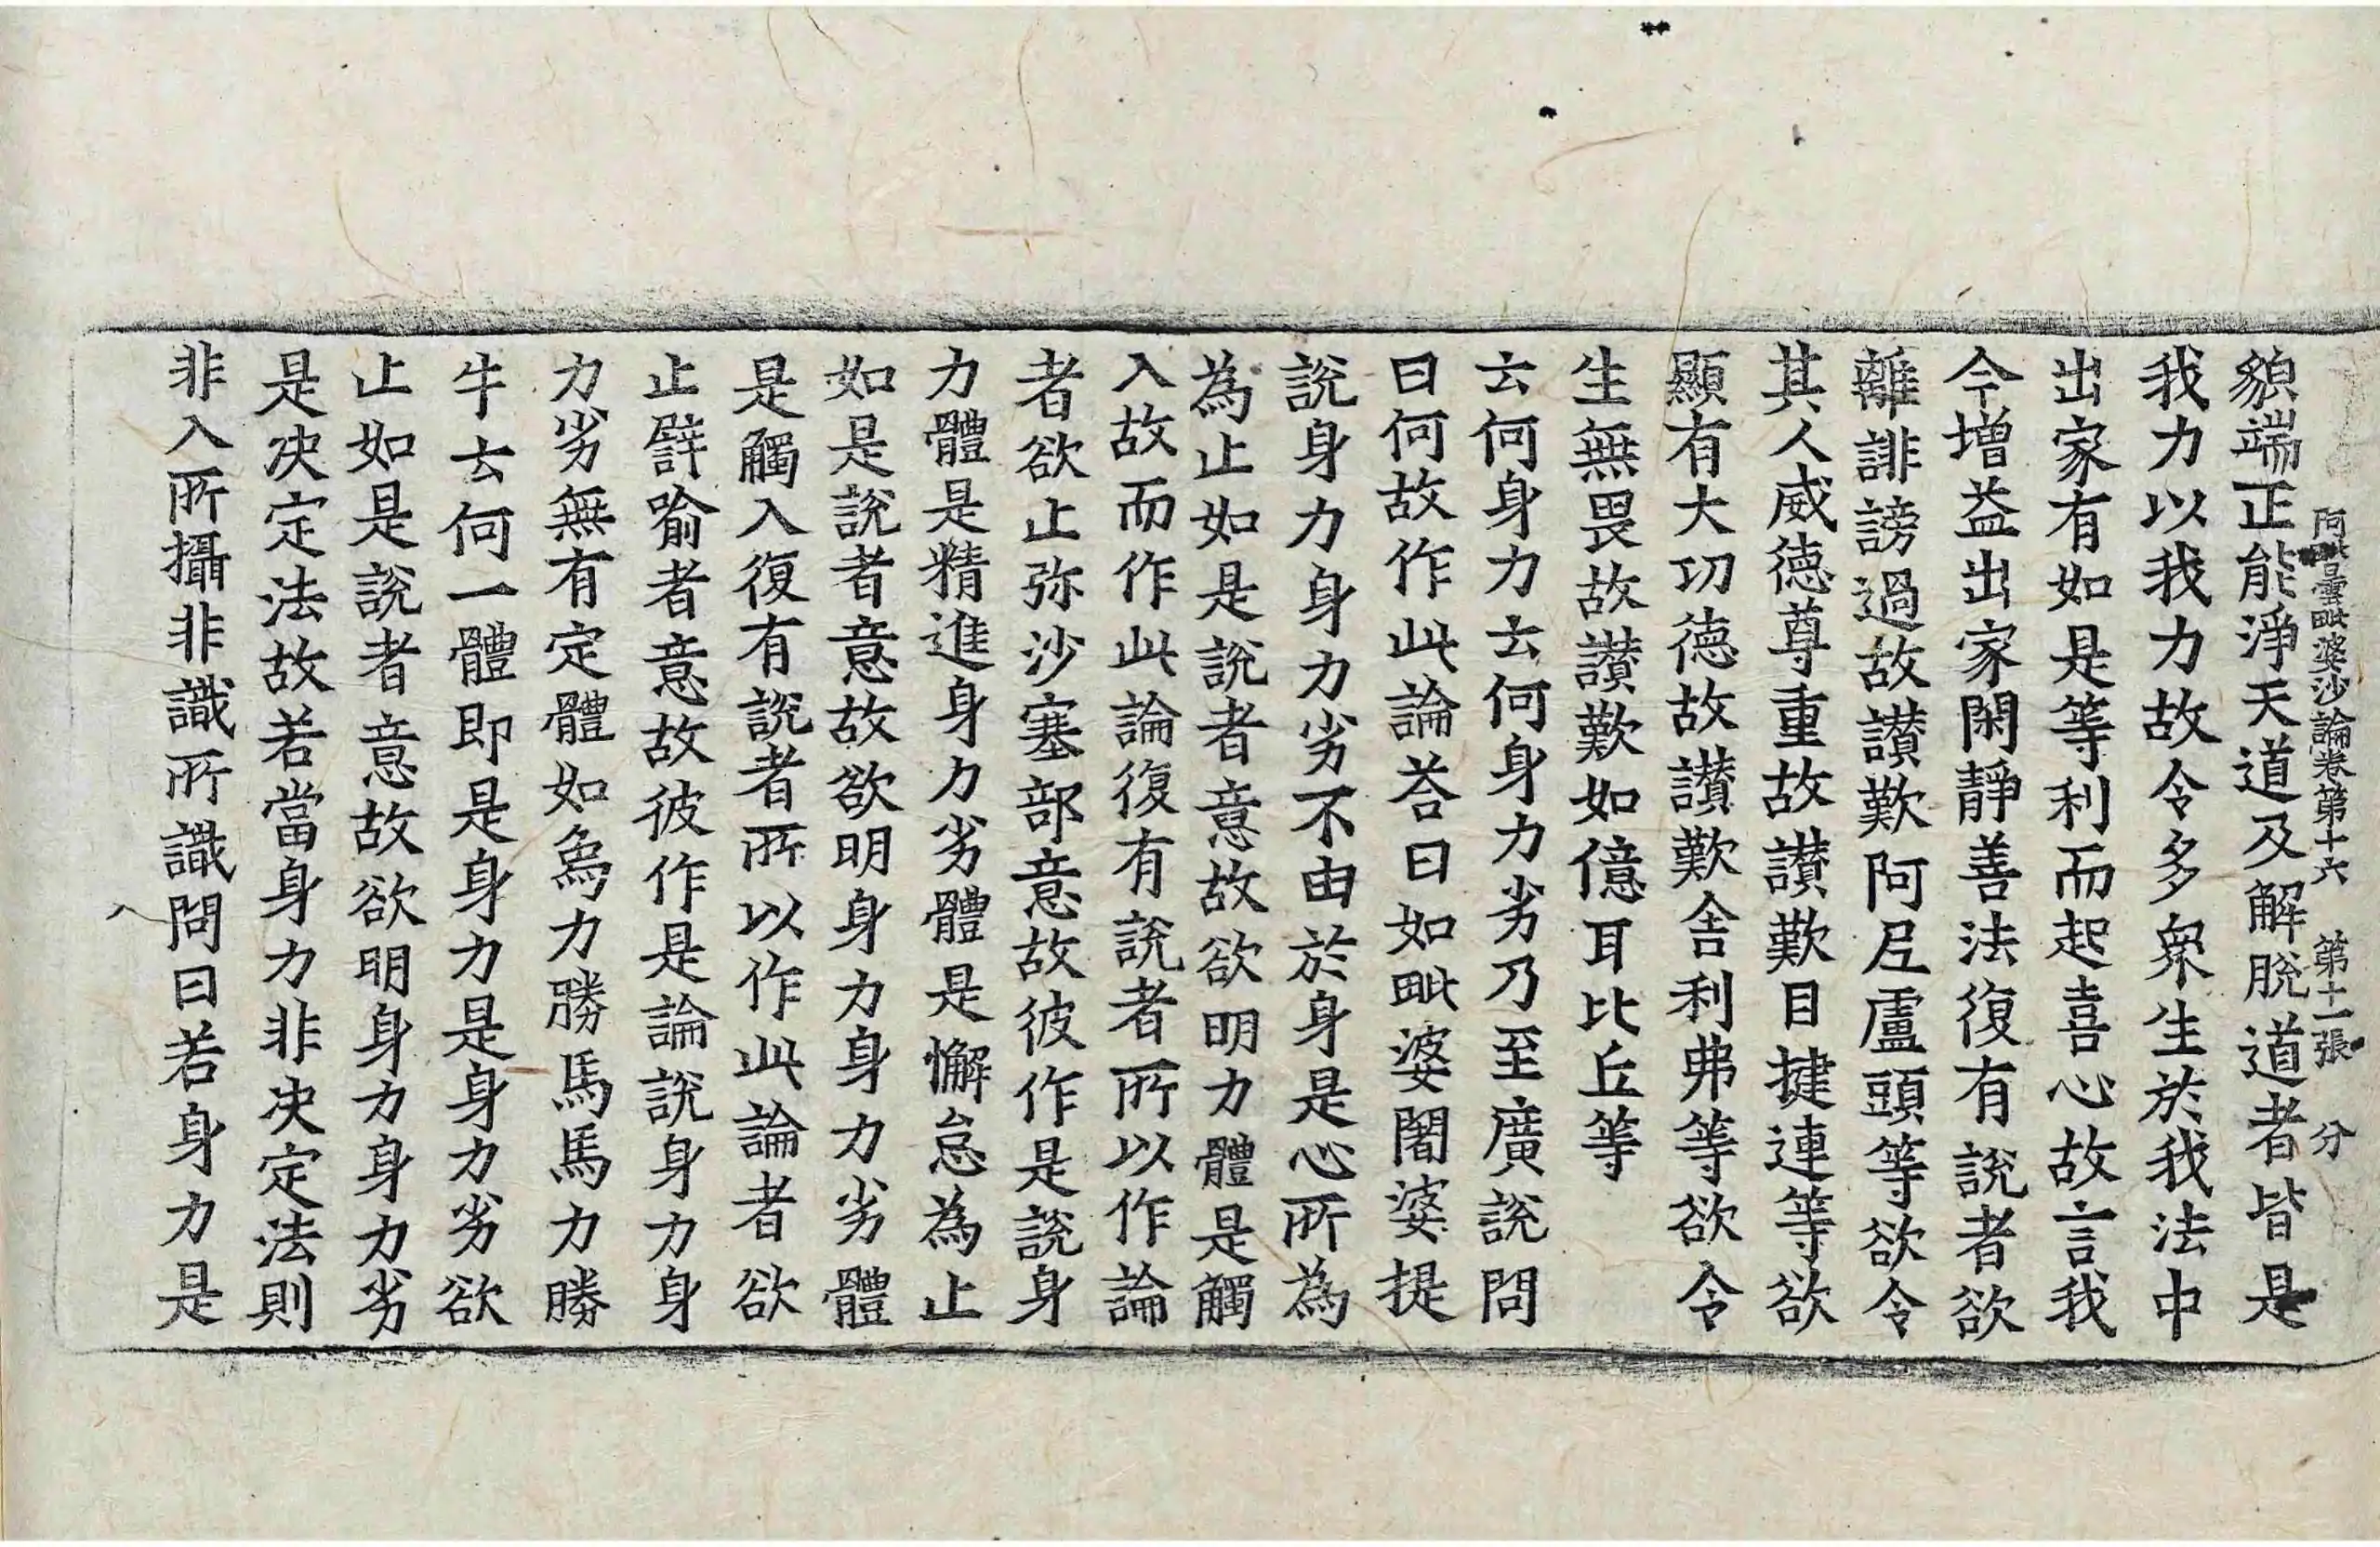 阿毗曇毗婆沙論卷第十六　第十一張　分
貌端正能淨天道及解脫道者皆是
我力以我力故令多衆生於我法中
出家有如是等利而起喜心故言我
今增益出家閑靜善法復有說者欲
離誹謗過故讃歎阿㞐盧頭等欲令
其人威德尊重故讃歎目揵連等欲
顯有大功德故讃歎舍利弗等欲令
生無畏故讃歎如億耳比丘等
云何身力云何身力劣乃至廣說問
曰何故作此論荅曰如毗婆闍婆提
說身力身力劣不由於身是心所為
為止如是說者意故欲明力體是觸
入故而作此論復有說者所以作論
者欲止弥沙塞部意故彼作是說身
力體是精進身力劣體是懈怠為止
如是說者意故欲明身力身力劣體
是觸入復有說者所以作此論者欲
止譬喻者意故彼作是論說身力身
力劣無有定體如象力勝馬馬力勝
牛云何一體即是身力是身力劣欲
止如是說者意故欲明身力身力劣
是决定法故若當身力非决定法則
非入所攝非識所識問曰若身力是